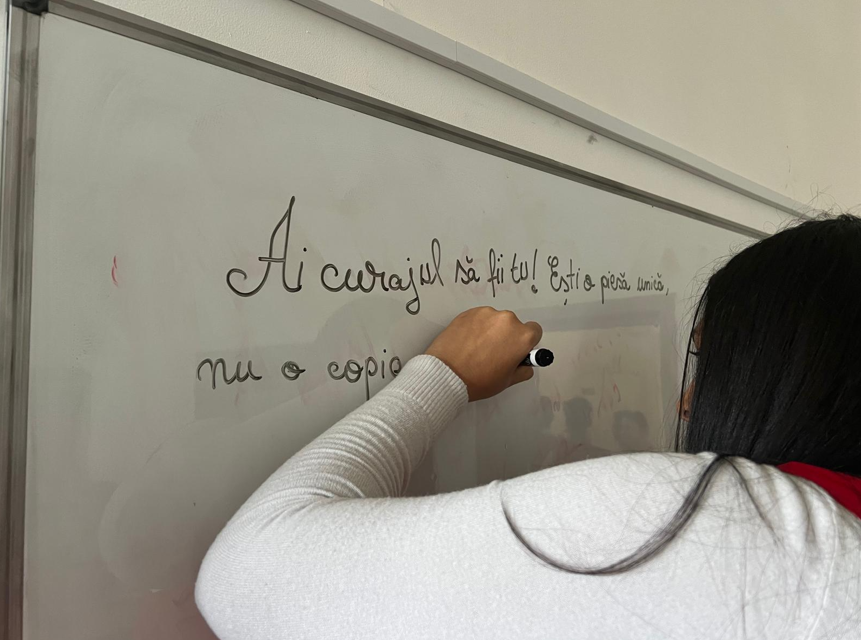 Ai curajul să fii tu! Ești o piesă unică,
nu o copie